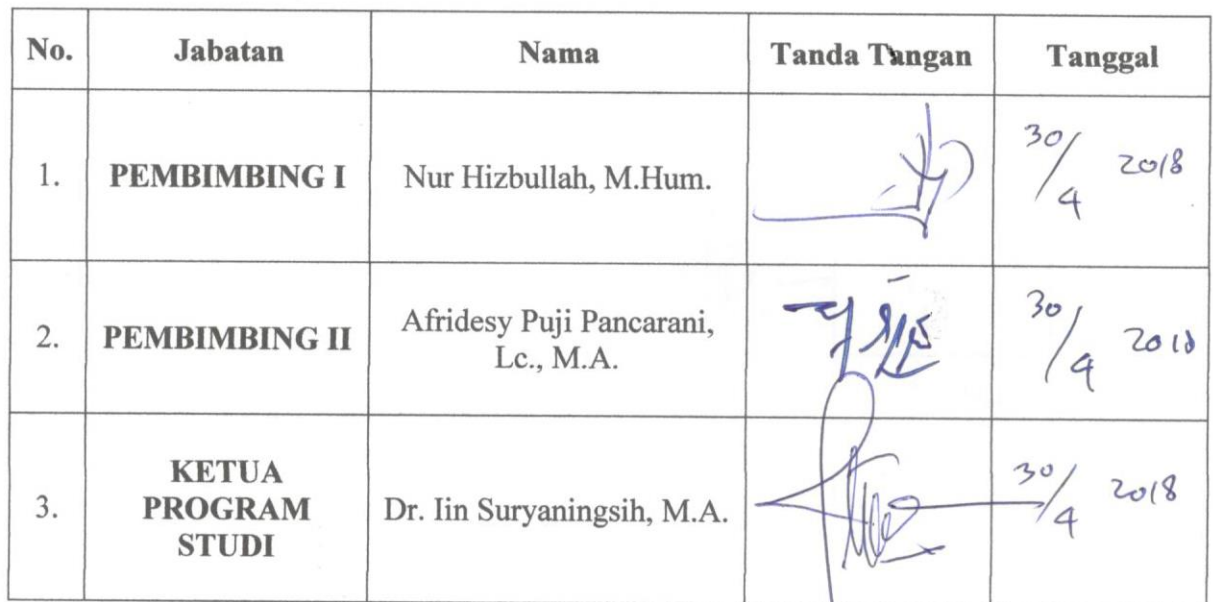 No. Jabatan Nama Tanda Tangan Tanggal
1. PEMBIMBING I Nur Hizbullah, M.Hum. 30/4 2018
2. PEMBIMBING II Afridesy Puji Pancarani,
Lc., M.A. 30/4 2018
3. KETUA
PROGRAM
STUDI Dr. Iin Suryaningsih, M.A. 30/4 2018